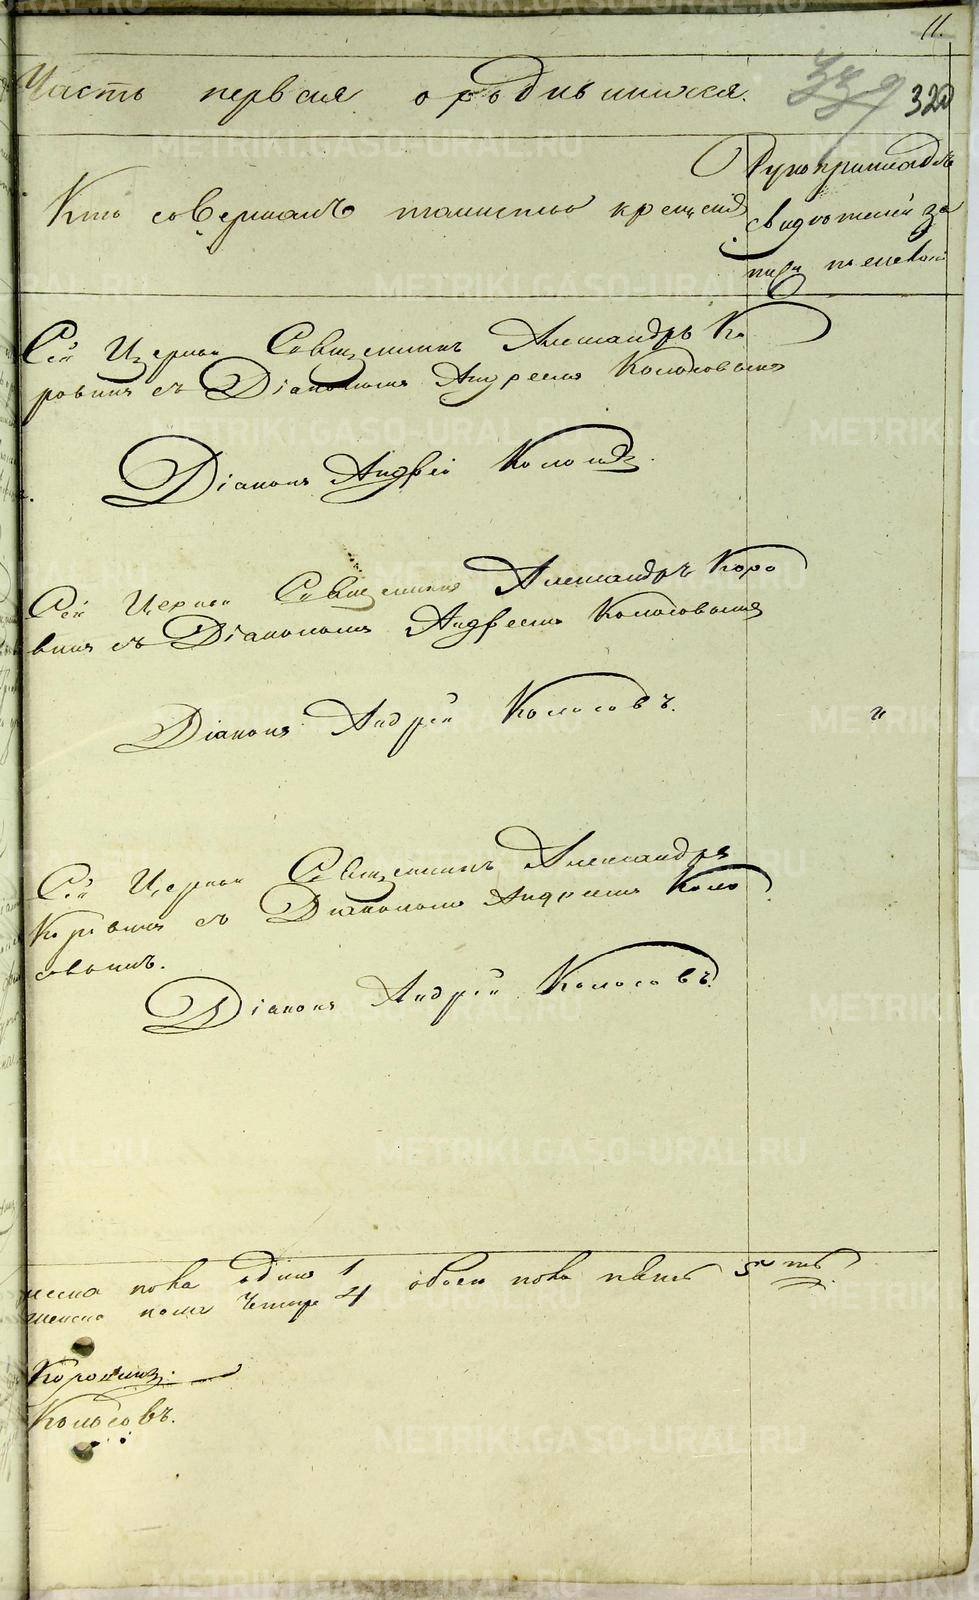 11.
Часть первая о родившихся.
339 320
Кто совершалъ таинство крещенія
Рукоприкладъ
свидѣтелей за
писи
Сей Церкви Священникъ Александръ Ко
ровинъ съ Діакономъ Андреемъ Колосовымъ
Діаконъ Андрей Колосовъ.
Сей Церкви Священникъ Александръ Коро
винъ съ Діакономъ Андреемъ Колосовымъ
Діаконъ Андрей Колосовъ.
"
Сей Церкви Священникъ Александръ
Коровинъ съ Діакономъ Андреемъ Коло
совымъ.
Діаконъ Андрей Колосовъ.
пола одинъ 1 обоего пола пять 5ть
женска пола четыре 4
Коровинъ.
Колосовъ.
METRIKI.GASO-URAL.RU